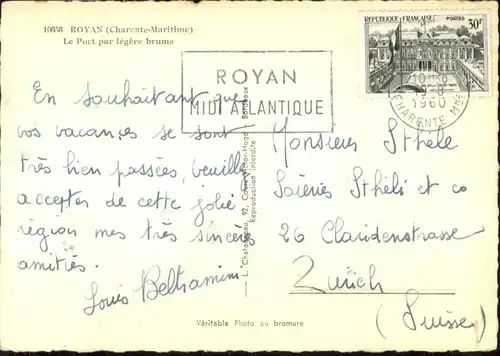 10858 ROYAN (Charente-Maritime)
Le Port par légère brume
REPUBLIQUE FRANÇAISE POSTES 30F
ROYAN
MIDI ATLANTIQUE
1960
CHARENTE MME
En souhaitant que
vos vacances se sont
très bien passées, veuillez
accepter de cette jolie
région mes très sincères
amitiés.
Louis Beltramini
92, Cours Victor-Hugo - Bordeaux
Reproduction interdite
Monsieur Sthele
Soieries Sthéli et co
26 Claridenstrasse
Zurich
(Suisse)
Véritable Photo au bromure